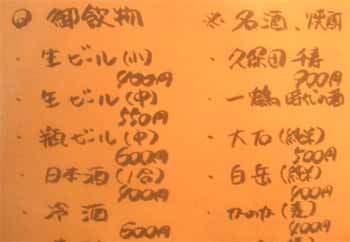 御飲物
・生ビール(小)
400円
・生ビール(中)
550円
・瓶ビール(中)
600円
・日本酒(1合)
400円
・冷酒
600円
※名酒、焼酎
・久保田 千寿
700円
・一鶴
・大石(純米)
500円
・白岳(純米)
400円
・かのか(麦)
400円